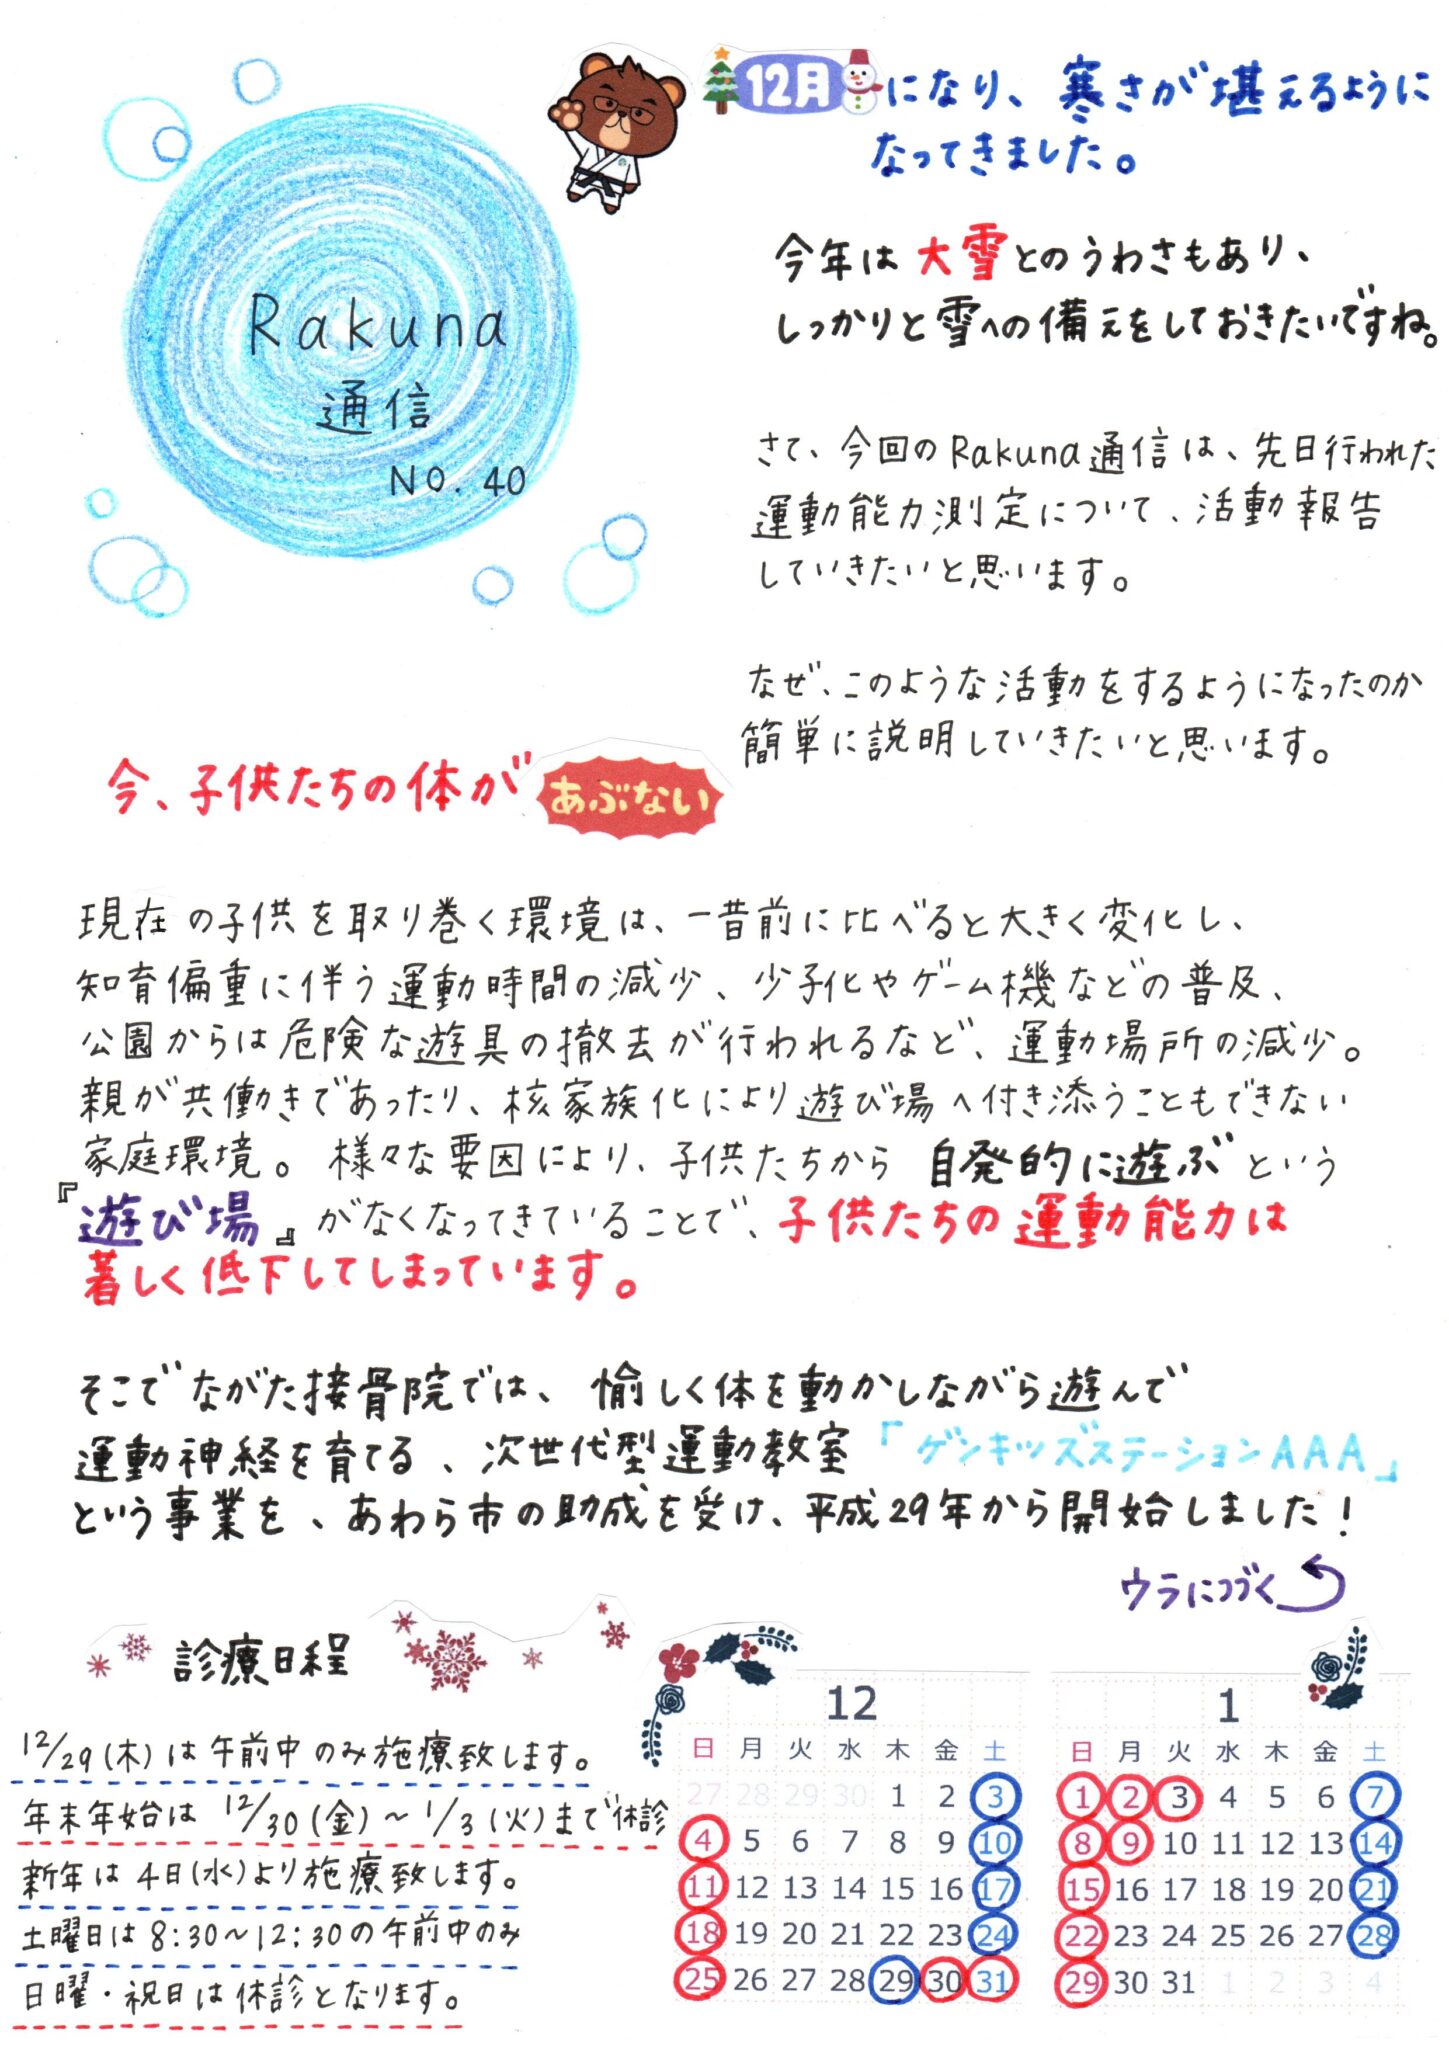 Rakuna
通信
NO. 40
12月になり、寒さが堪えるように
なってきました。
今年は大雪とのうわさもあり、
しっかりと雪への備えをしておきたいですね。
さて、今回のRakuna通信は、先日行われた
運動能力測定について、活動報告
していきたいと思います。
なぜ、このような活動をするようになったのか
簡単に説明していきたいと思います。
今、子供たちの体が あぶない
現在の子供を取り巻く環境は、一昔前に比べると大きく変化し、
知育偏重に伴う運動時間の減少、少子化やゲーム機などの普及、
公園からは危険な遊具の撤去が行われるなど、運動場所の減少。
親が共働きであったり、核家族化により遊び場へ付き添うこともできない
家庭環境。様々な要因により、子供たちから 自発的に遊ぶという
『遊び場』がなくなってきていることで、子供たちの運動能力は
著しく低下してしまっています。
そこでながた接骨院では、愉しく体を動かしながら遊んで
運動神経を育てる、次世代型運動教室「ゲンキッズステーションAAA」
という事業を、あわら市の助成を受け、平成29年から開始しました!
ウラにつづく
診療日程
12/29(木)は午前中のみ施療致します。
年末年始は 12/30(金)～1/3(火)まで休診
新年は 4日(水)より施療致します。
土曜日は 8:30～12:30の午前中のみ
日曜・祝日は休診となります。
12
日 月 火 水 木 金 土
27 28 29 30 1 2 3
4 5 6 7 8 9 10
11 12 13 14 15 16 17
18 19 20 21 22 23 24
25 26 27 28 29 30 31
1
日 月 火 水 木 金 土
1 2 3 4 5 6 7
8 9 10 11 12 13 14
15 16 17 18 19 20 21
22 23 24 25 26 27 28
29 30 31 1 2 3 4